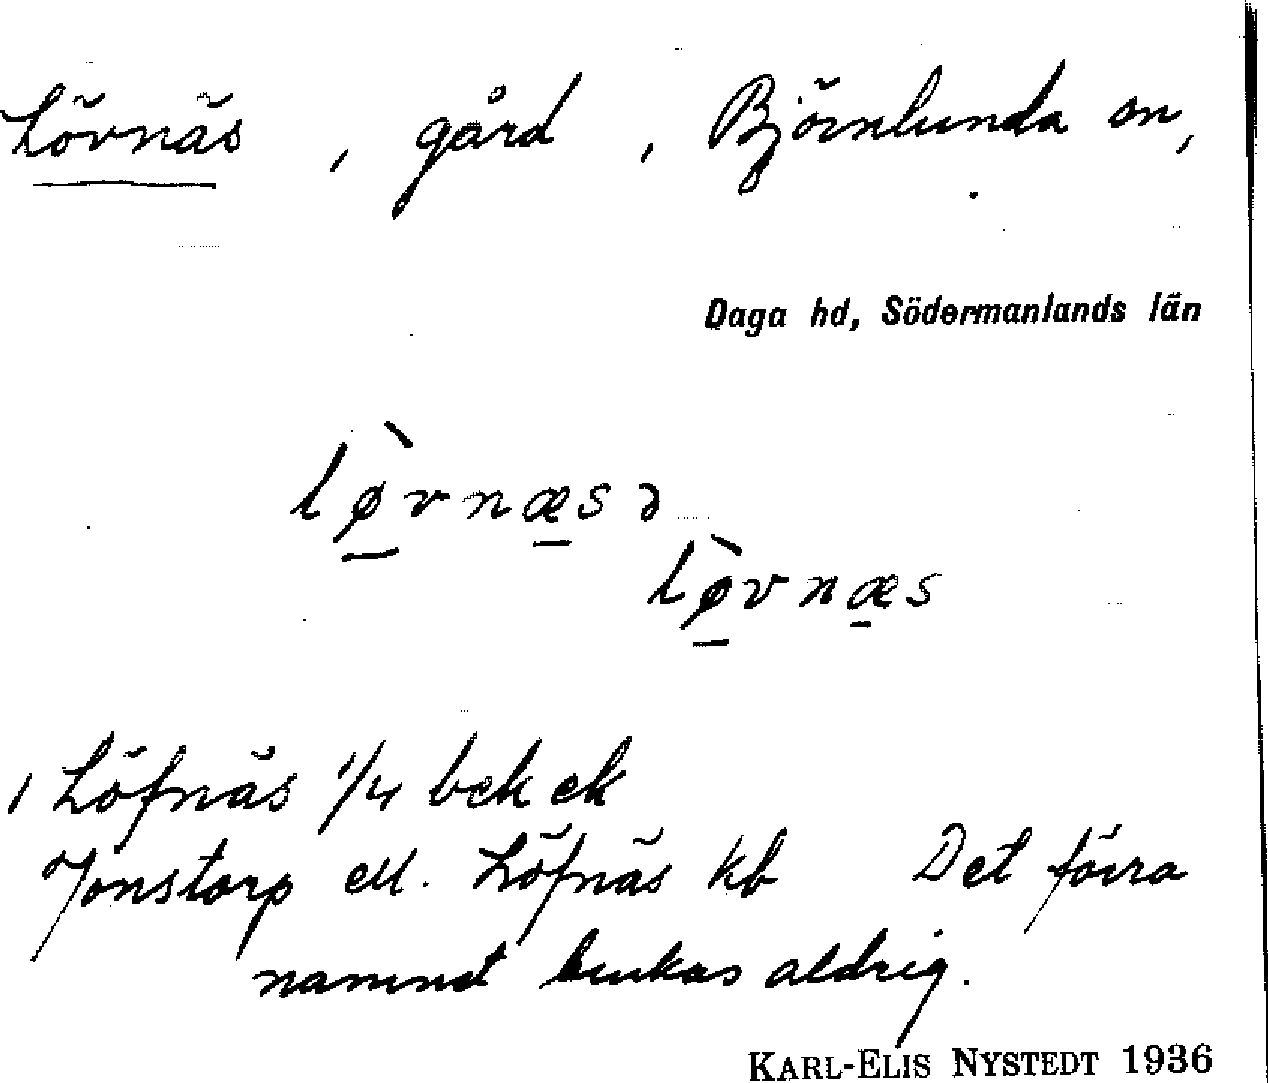 Lövnäs, gård, Björnlunda sn,
Daga hd, Södermanlands län
lø̀vnæsə
lø̀vnæs
1 Löfnäs 1/4 bek ek
Jönstorp ell. Löfnäs kb Det förra
namnet brukas aldrig.
KARL-ELIS NYSTEDT 1936